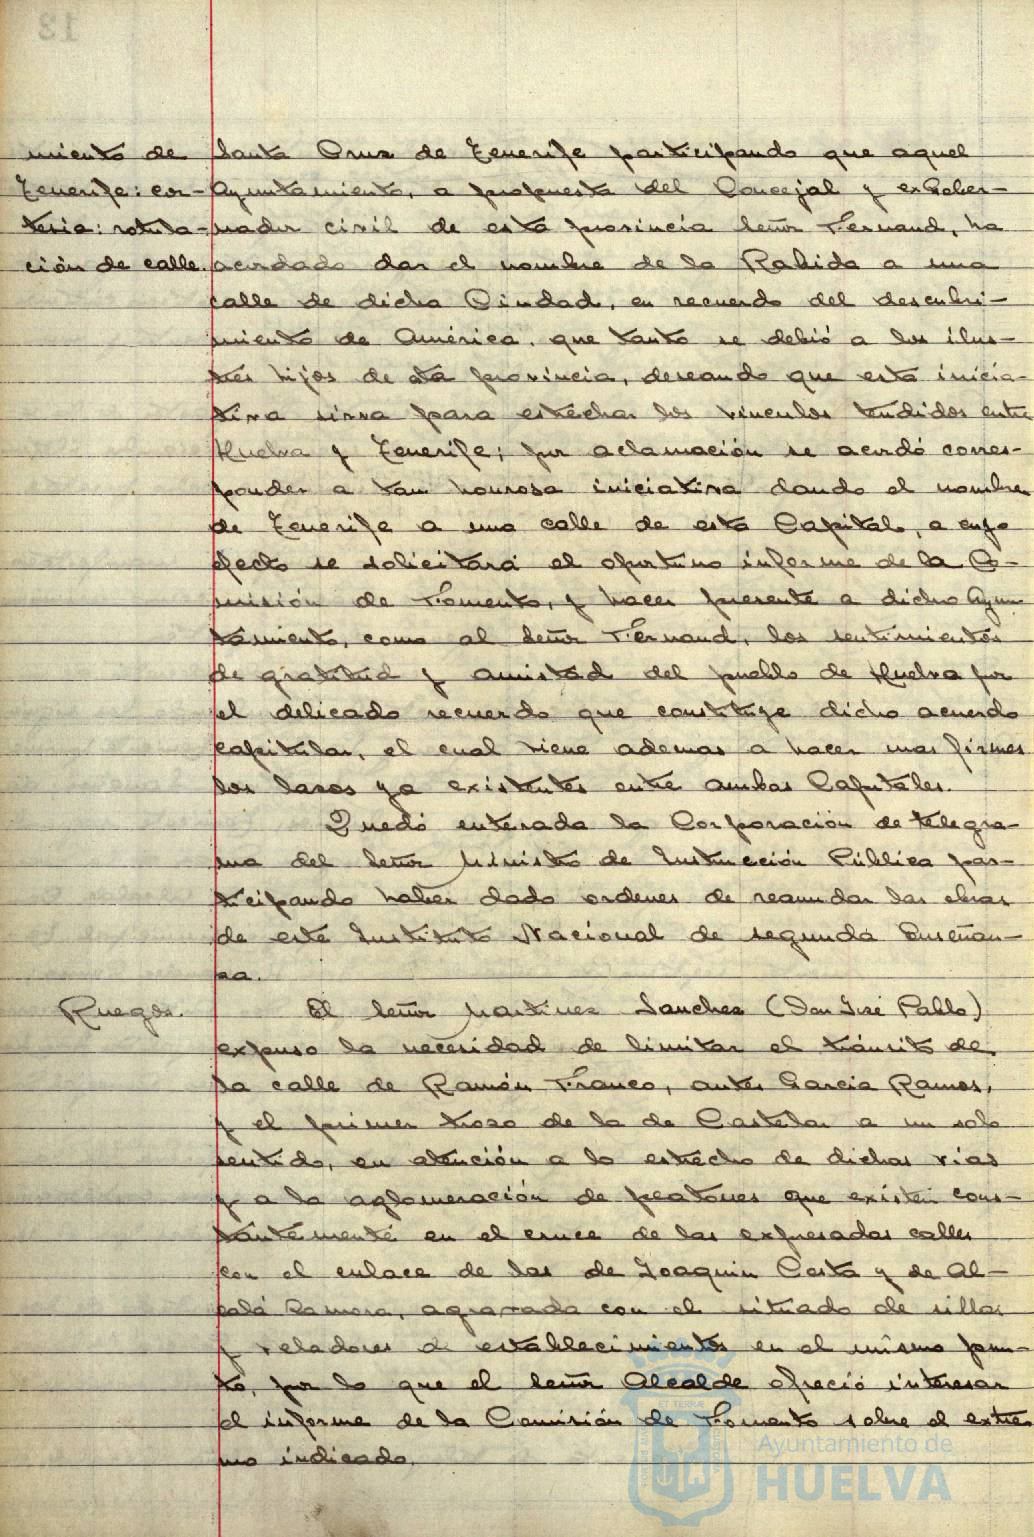 13
miento de
Tenerife: cor-
tesia: rotula-
ción de calle.
Santa Cruz de Tenerife participando que aquel
Ayuntamiento, a propuesta del Concejal y exGober-
nador civil de esta provincia Señor Fernaud, ha
acordado dar el nombre de la Rabida a una
calle de dicha Ciudad, en recuerdo del descubri-
miento de América, que tanto se debió a los ilus-
tres hijos de esta provincia, deseando que esta inicia-
tiva sirva para estrechar los vinculos tendidos entre
Huelva y Tenerife; por aclamación se acordó corres-
ponder a tan honrosa iniciativa dando el nombre
de Tenerife a una calle de esta Capital, a cuyo
efecto se solicitará el oportuno informe de la Co-
misión de Fomento, y hacer presente a dicho Ayun-
tamiento, como al Señor Fernaud, los sentimientos
de gratitud y amistad del pueblo de Huelva por
el delicado recuerdo que constituye dicho acuerdo
capitular, el cual viene ademas a hacer mas firmes
los lazos ya existentes entre ambas Capitales.
Quedó enterada la Corporación de telegra-
ma del Señor Ministro de Instrucción Pública par-
ticipando haber dado ordenes de reanudar las obras
de este Instituto Nacional de segunda Enseñan-
za.
Ruegos.
El Señor Martinez Sanchez (Don José Pablo)
expuso la necesidad de limitar el tránsito de
la calle de Ramón Franco, antes Garcia Ramos,
y el primer trozo de la de Castelar a un solo
sentido, en atención a lo estrecho de dichas vias
y a la aglomeración de peatones que existen cons-
tantemente en el cruce de las expresadas calles
con el enlace de las de Joaquin Costa y de Al-
calá Zamora, agravada con el situado de sillas
y veladores de establecimientos en el mismo pun-
to, por lo que el Señor Alcalde ofreció interesar
el informe de la Comisión de Fomento sobre el extre
mo indicado.
Ayuntamiento de
HUELVA